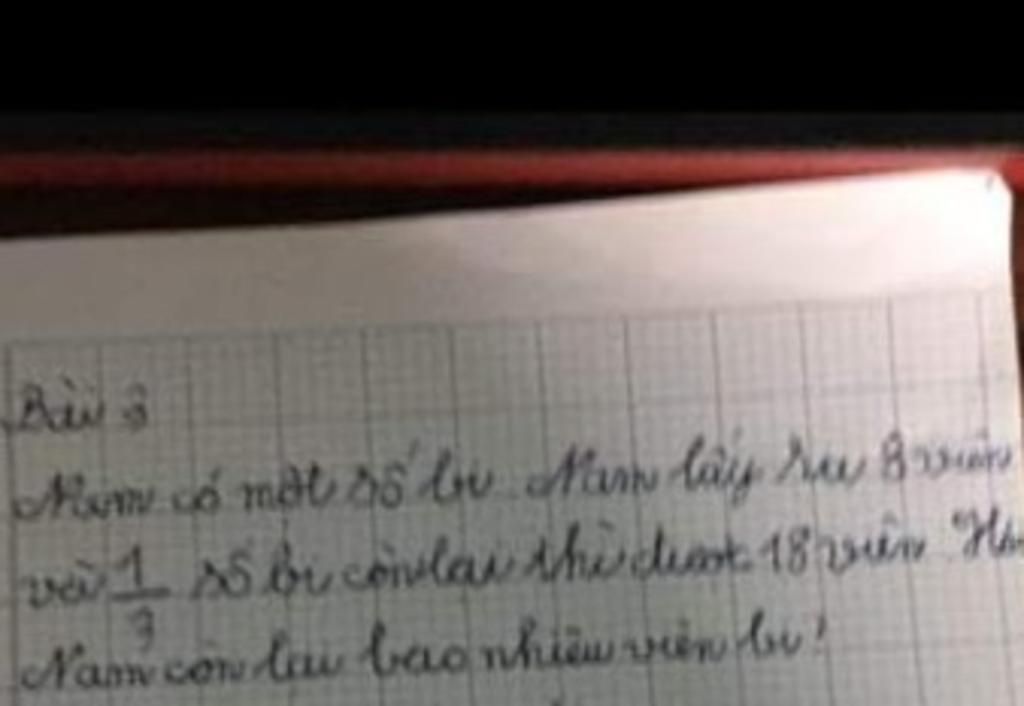 Bài 3
Nam có một số bi. Nam lấy ra 8 viên
và 1/3 số bi còn lại thì được 18 viên Hỏi
Nam còn lại bao nhiêu viên bi?